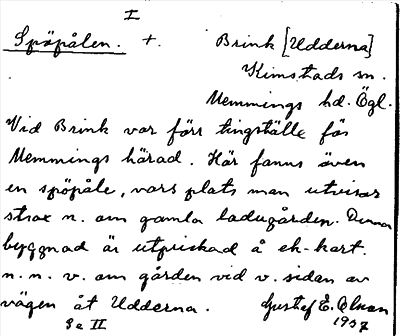 I
Spöpålen. +. Brink [Udderna]
Kimstads sn.
Memmings hd. Ögl.
Vid Brink var förr tingställe för
Memmings härad. Här fanns även
en spöpåle, vars plats man utvisar
strax n. om gamla ladugården. Denna
byggnad är utprickad å ek-kart.
n. n. v. om gården vid v. sidan av
vägen åt Udderna. Gustaf E. Olsson
Se II 1937